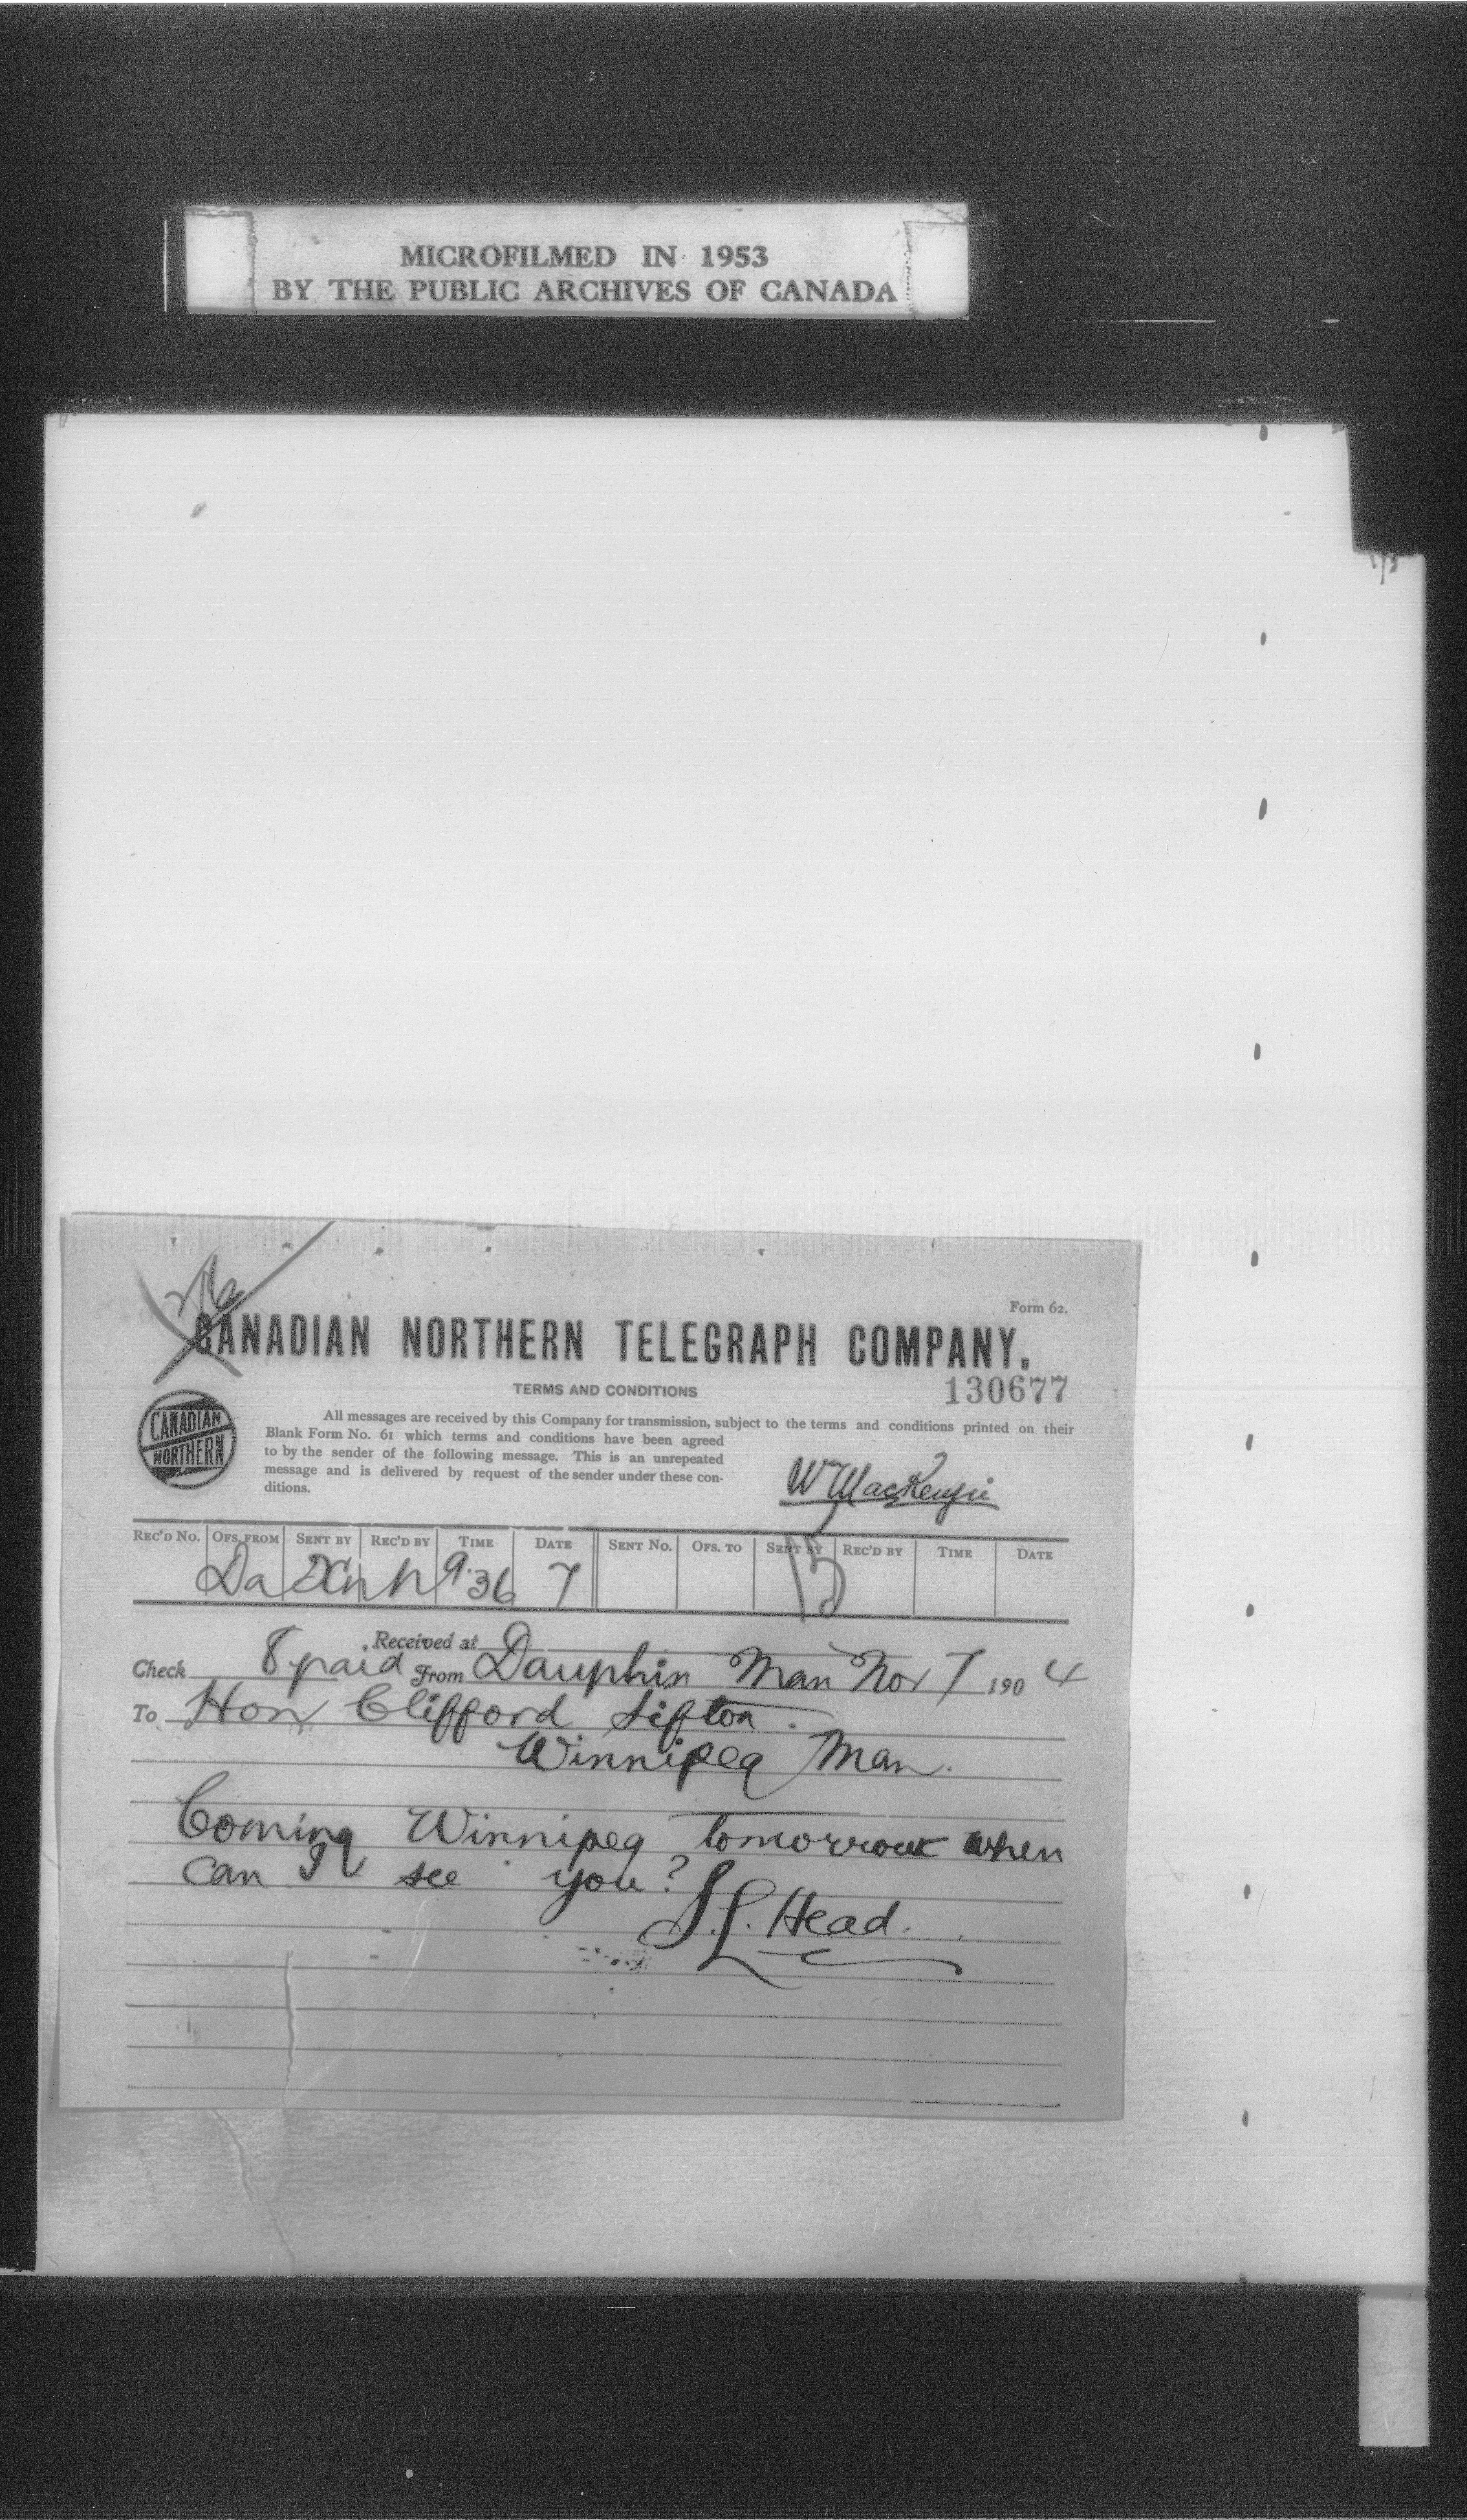 MICROFILMED IN 1953
BY THE PUBLIC ARCHIVES OF CANADA
Form 62.
CANADIAN NORTHERN TELEGRAPH COMPANY.
130677
TERMS AND CONDITIONS
CANADIAN
NORTHERN
All messages are received by this Company for transmission, subject to the terms and conditions printed on their
Blank Form No. 61 which terms and conditions have been agreed
to by the sender of the following message. This is an unrepeated
message and is delivered by request of the sender under these con-
ditions.
W MacKenzie
REC'D NO. OFS. FROM SENT BY REC'D BY TIME DATE SENT NO. OFS. TO SENT BY REC'D BY TIME DATE
Da 9.36 7
Received at
Check 8 paid From Dauphin Man Nov 7 1904
To Hon Clifford Sifton.
Winnipeg Man.
Coming Winnipeg tomorrow when
can I see you?
S.L. Head.